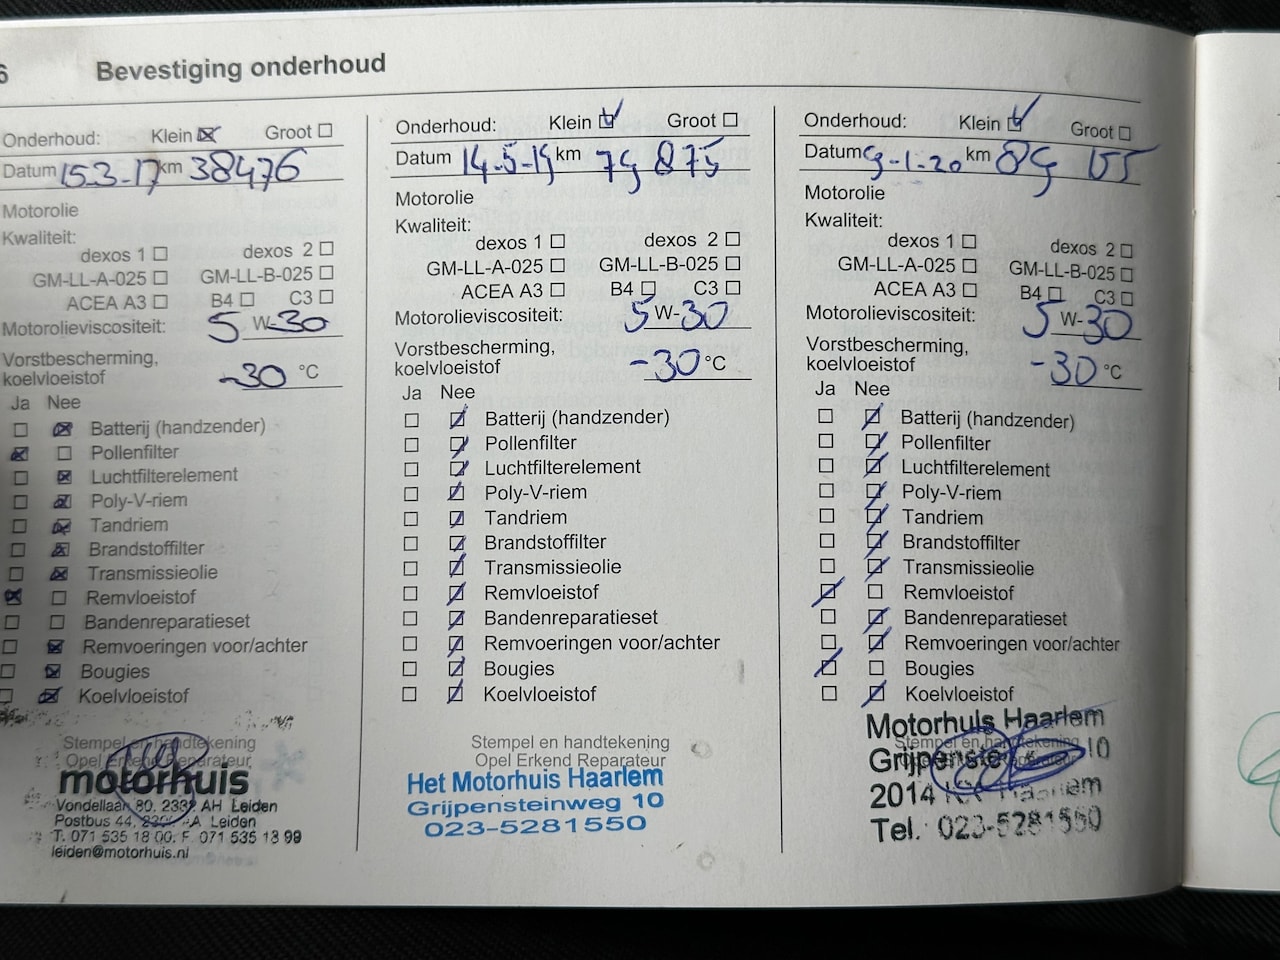 6 Bevestiging onderhoud
Onderhoud: Klein Groot
Datum 15.3-17 km 38476
Motorolie
Kwaliteit:
dexos 1 dexos 2
GM-LL-A-025 GM-LL-B-025
ACEA A3 B4 C3
Motorolieviscositeit: 5 W-30
Vorstbescherming,
koelvloeistof -30 °C
Ja Nee
Batterij (handzender)
Pollenfilter
Luchtfilterelement
Poly-V-riem
Tandriem
Brandstoffilter
Transmissieolie
Remvloeistof
Bandenreparatieset
Remvoeringen voor/achter
Bougies
Koelvloeistof
Stempel en handtekening
Opel Erkend Reparateur
motorhuis
Vondellaan 80, 2332 AH Leiden
Postbus 44, A Leiden
T. 071 535 18 00. F 071 535 18 99
leiden@motorhuis.nl
Onderhoud: Klein Groot
Datum 14-5-19 km 79 875
Motorolie
Kwaliteit:
dexos 1 dexos 2
GM-LL-A-025 GM-LL-B-025
ACEA A3 B4 C3
Motorolieviscositeit: 5 W-30
Vorstbescherming,
koelvloeistof -30 °C
Ja Nee
Batterij (handzender)
Pollenfilter
Luchtfilterelement
Poly-V-riem
Tandriem
Brandstoffilter
Transmissieolie
Remvloeistof
Bandenreparatieset
Remvoeringen voor/achter
Bougies
Koelvloeistof
Stempel en handtekening
Opel Erkend Reparateur
Het Motorhuis Haarlem
Grijpensteinweg 10
023-5281550
Onderhoud: Klein Groot
Datum 9-1-20 km 89 155
Motorolie
Kwaliteit:
dexos 1 dexos 2
GM-LL-A-025 GM-LL-B-025
ACEA A3 B4 C3
Motorolieviscositeit: 5 W-30
Vorstbescherming,
koelvloeistof -30 °C
Ja Nee
Batterij (handzender)
Pollenfilter
Luchtfilterelement
Poly-V-riem
Tandriem
Brandstoffilter
Transmissieolie
Remvloeistof
Bandenreparatieset
Remvoeringen voor/achter
Bougies
Koelvloeistof
Stempel en handtekening
Motorhuis Haarlem
10
2014 Haarlem
Tel. 023-5281550